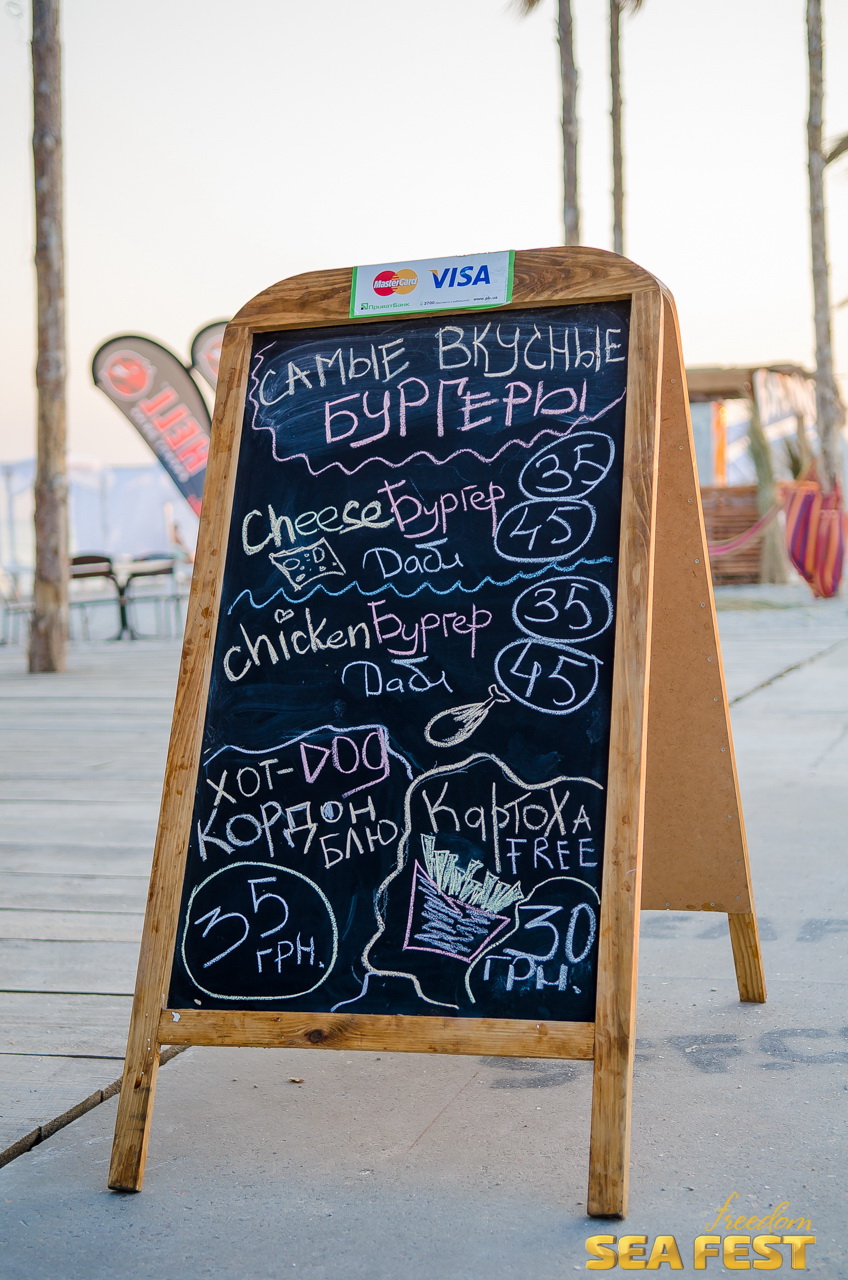 MasterCard VISA
ПриватБанк
www.pb.ua
HELL
САМЫЕ ВКУСНЫЕ
БУРГЕРЫ
CheeseБургер 35
Дабл 45
chickenБургер 35
Дабл 45
ХОТ-DOG
КОРДОН
БЛЮ
35
ГРН.
КартоХА
FREE
30
ГРН.
freedom
SEA FEST